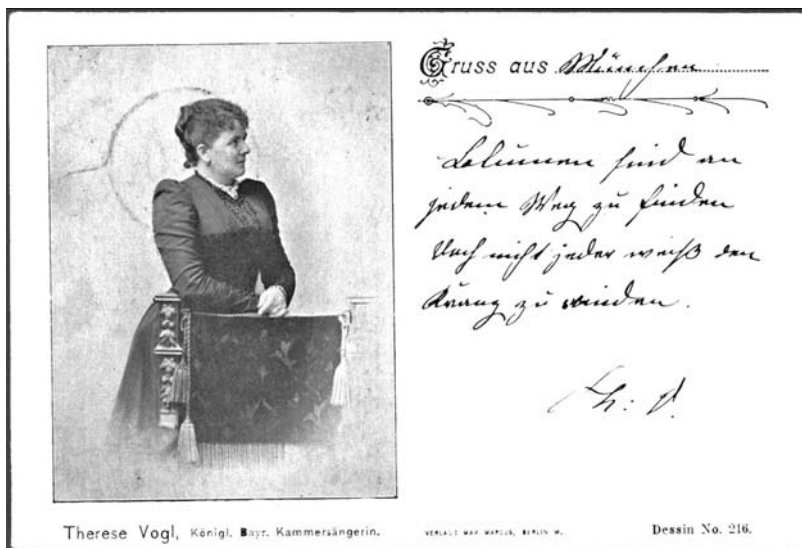 Gruss aus München
Blumen sind an
jedem Weg zu finden
Doch nicht jeder weiß den
Kranz zu winden.
Th: V.
Therese Vogl, Königl. Bayr. Kammersängerin.
VERLAG MAX MARCUS, BERLIN W.
Dessin No. 216.